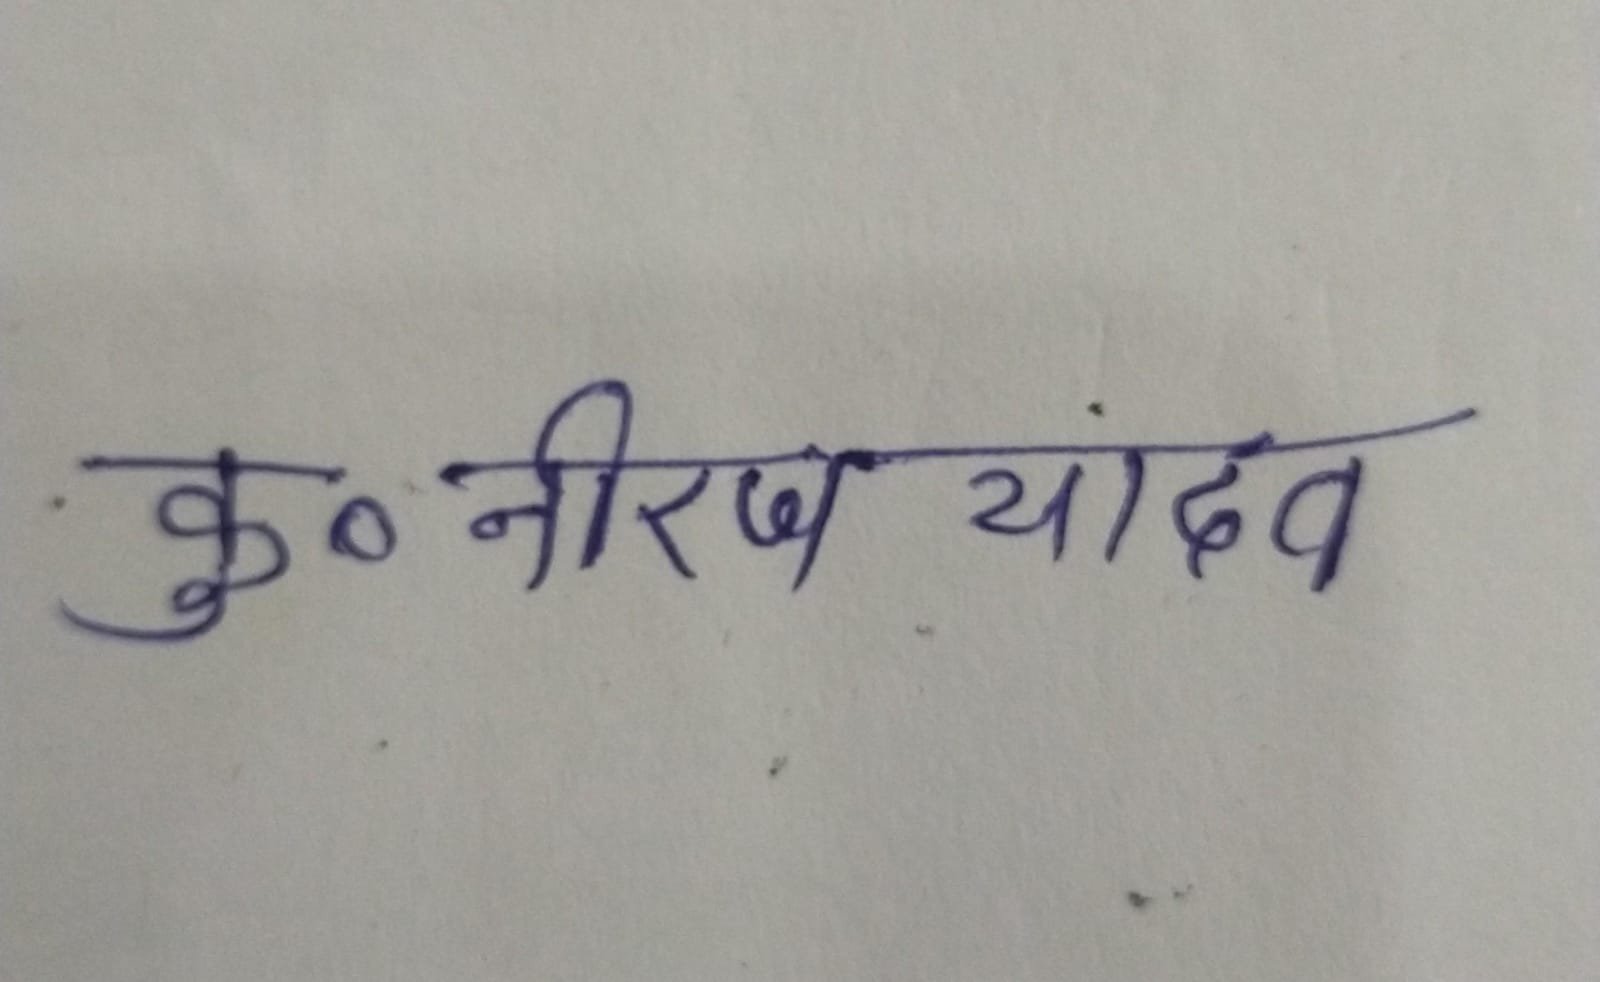 कु० नीरज यादव